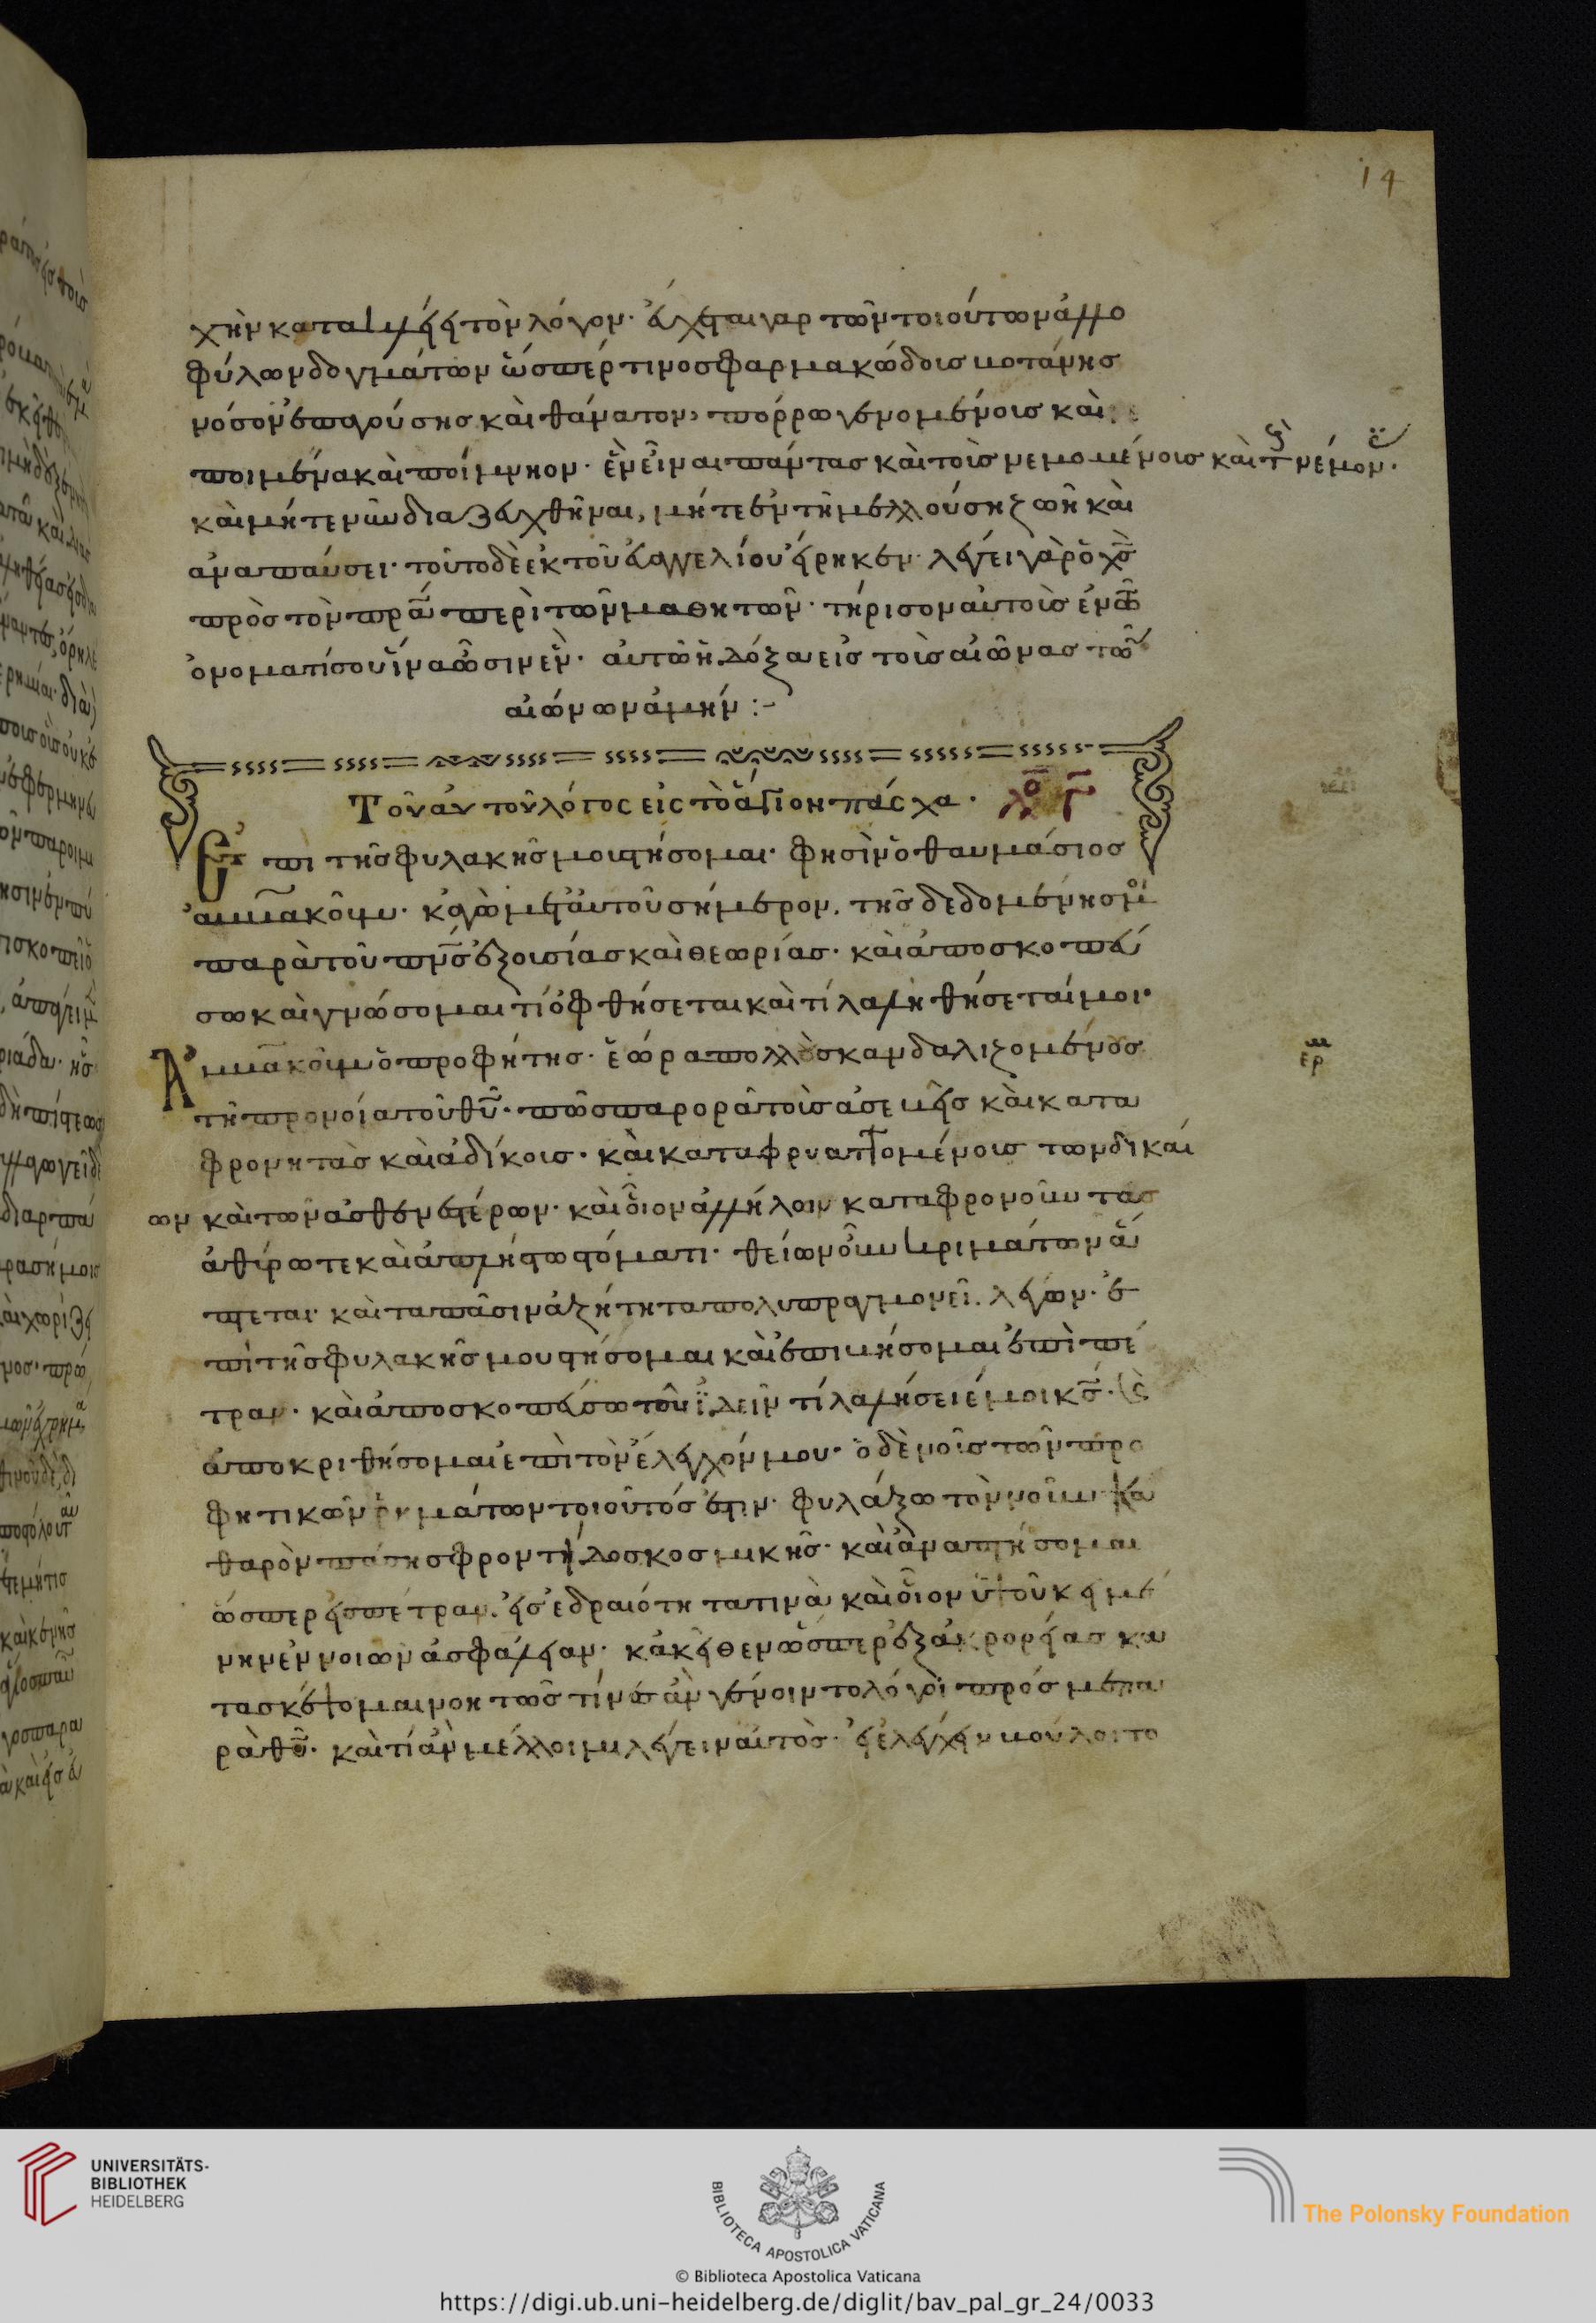 14
χὴν καταλήξει τὸν λόγον· εὔχεται γαρ τῶν τοιούτων ἀλλο
φύλων δογμάτων ὥσπέρ τινος φαρμακώδους βοτάνης
νόσον ἐπαγούσης καὶ θάνατον, πόρρω γενομένοις καὶ
ποιμένα καὶ ποίμνιον· ἓν εἶναι πάντας καὶ τοῖς νεμομένοις καὶ τ νέμον·
καὶ μήτε νῦν διαζευχθῆναι, μήτε ἐν τῆ μελλούσηι ζωῆ καὶ
αναπαύσει· τοῦτο δὲ ἐκ τοῦ εὐαγγελίου εἴρηκεν· λέγει γὰρ ὁ χς
πρὸς τὸν πρα περὶ τῶν μαθητῶν· τήρισον αὐτοὺς ἐν τῶ
ὀνοματί σου ἵνα ὦσιν ἓν· αὐτῶ ἡ δόξα εἰς τοὺς αἰῶνας τῶ
αἰώνων ἀμήν :-
Τοῦ αὐ τοῦ λόγος εἰς τὸ ἅγιον πάσχα· λο Γ
Ἐπι τῆς φυλακῆς μου στήσομαι· φησὶν ὁ θαυμάσιος
ἀμβακοὺμ· κἀγὼ μετ αὐτοῦ σήμερον, τῆς δεδομένης μοι
παρὰ τοῦ πνς ἐξουσίας καὶ θεωρίας· καὶ ἀποσκοπεύ
σω καὶ γνώσομαι τί ὀφθήσεται καὶ τί λαληθήσεταί μοι·
Ἀμβακοὺμ ὁ προφήτης· ἑώρα πολλοὺς σκανδαλιζομένους
ερ
τῆ προνοία τοῦ θυ· πῶς παρορᾶ τοὺς ἀσεβεῖς καὶ κατα
φρονητὰς καὶ ἀδίκοις· καὶ καταφρυαττομένοις τῶν δικαί
ων καὶ τῶν ἀσθενεστέρων· καὶ οἷον ἀλλήλοιν καταφρονοῦντας
ἀθύρω τε καὶ ἀπλήστω στόματι· θείων οὖν κριμάτων ἅ
πτεται· καὶ τὰ πᾶσιν ἀζήτητα πολυπραγμονεῖ. λέγων· ἐ
πὶ τῆς φυλακῆς μου στήσομαι καὶ ἐπιβήσομαι ἐπὶ πέ
τραν· καὶ ἀποσκοπεύσω τοῦ ἰδεῖν τί λαλήσει ἐμοι κς· (ὲ
ἀποκριθήσομαι ἐπὶ τὸν ἔλεγχόν μου· ὁ δὲ νοῦς τῶν προ
φητικῶν ῥημάτων τοιοῦτός ἐστιν· φυλάξω τὸν νοῦν κα
θαρὸν πάσης φροντίδος κοσμικῆς· καὶ ἀναστήσομαι
ὥσπερ εἰς πέτραν, εἰς ἑδραιότητα τινὰ καὶ οἷον εὐτοῦ κειμέ
νην ἐννοιῶν ἀσφάλειαν· κἀκεῖθεν ὥσπερ ἐξ ἀκρορείας κα
τασκέψομαι νοητῶς τίνες ἂν γένοιντο λόγοι πρός με πα
ρὰ θυ· καὶ τί ἂν μέλλοιμι λέγειν αὐτὸς· εἰ ἐλέγχειν βούλοιτο
UNIVERSITÄTS-
BIBLIOTHEK
HEIDELBERG
BIBLIOTECA APOSTOLICA VATICANA
The Polonsky Foundation
© Biblioteca Apostolica Vaticana
https://digi.ub.uni-heidelberg.de/diglit/bav_pal_gr_24/0033